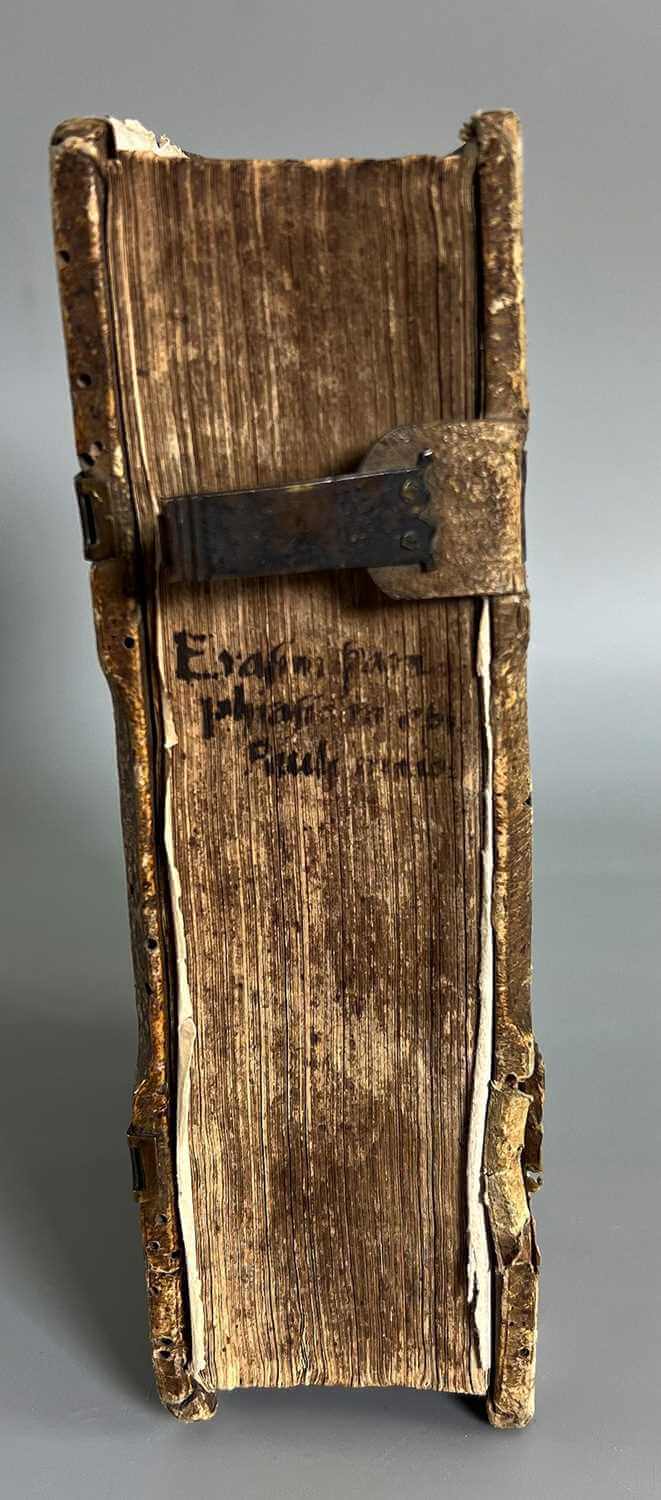 Erasmi para
phrasis in epi
Pauli